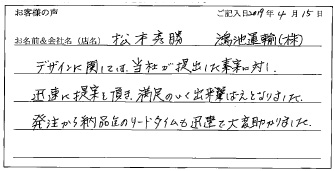 お客様の声 ご記入日2019年4月15日
お名前&会社名(店名) 松本秀勝 鴻池運輸(株)
デザインに関しては、当社が提出した事案に対し、
迅速に提案を頂き、満足のいく出来栄えとなりました。
発注から納品迄のリードタイムも迅速で大変助かりました。